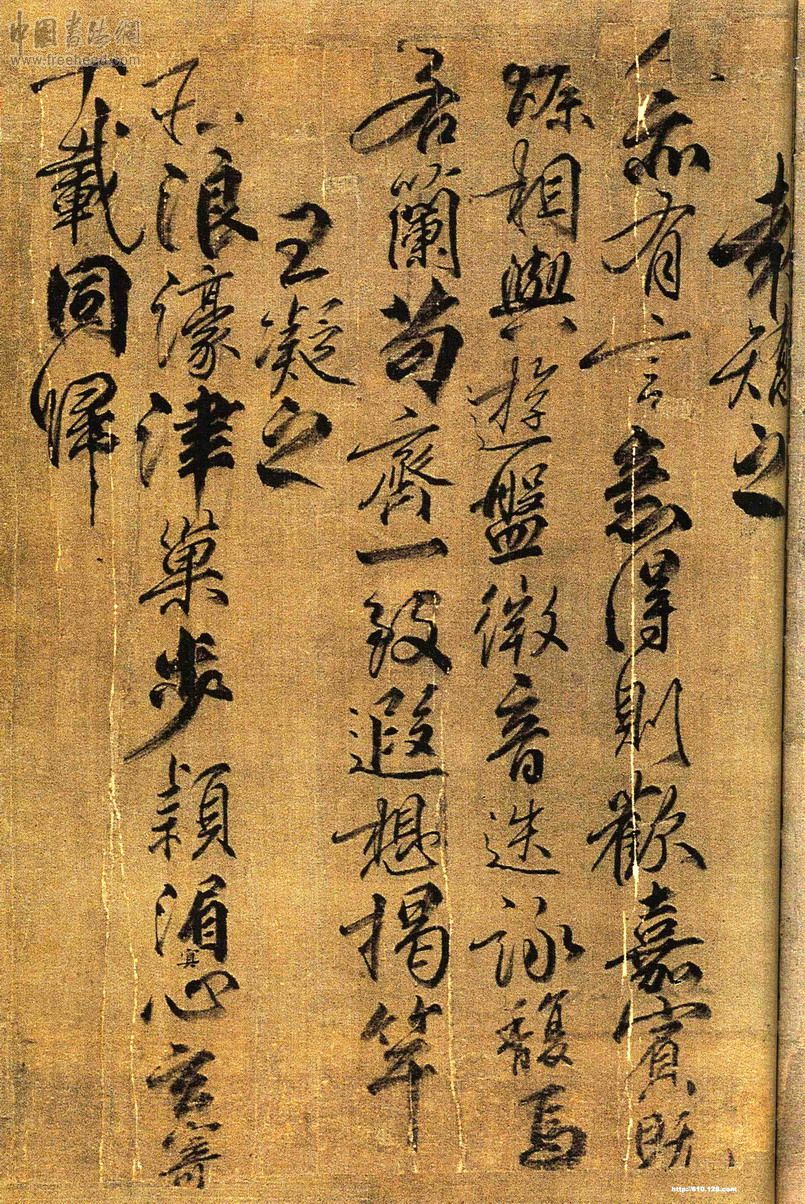 中国书法網
www.freehead.com
袁 之
人亦有言意得則歡嘉賓既
臻相與遊盤微音迭詠馥焉
若蘭苟齊一致遐想揭竿
王凝之
莊浪濠津巢步潁湄冥心玄寄
千載同歸
http://610.126.com